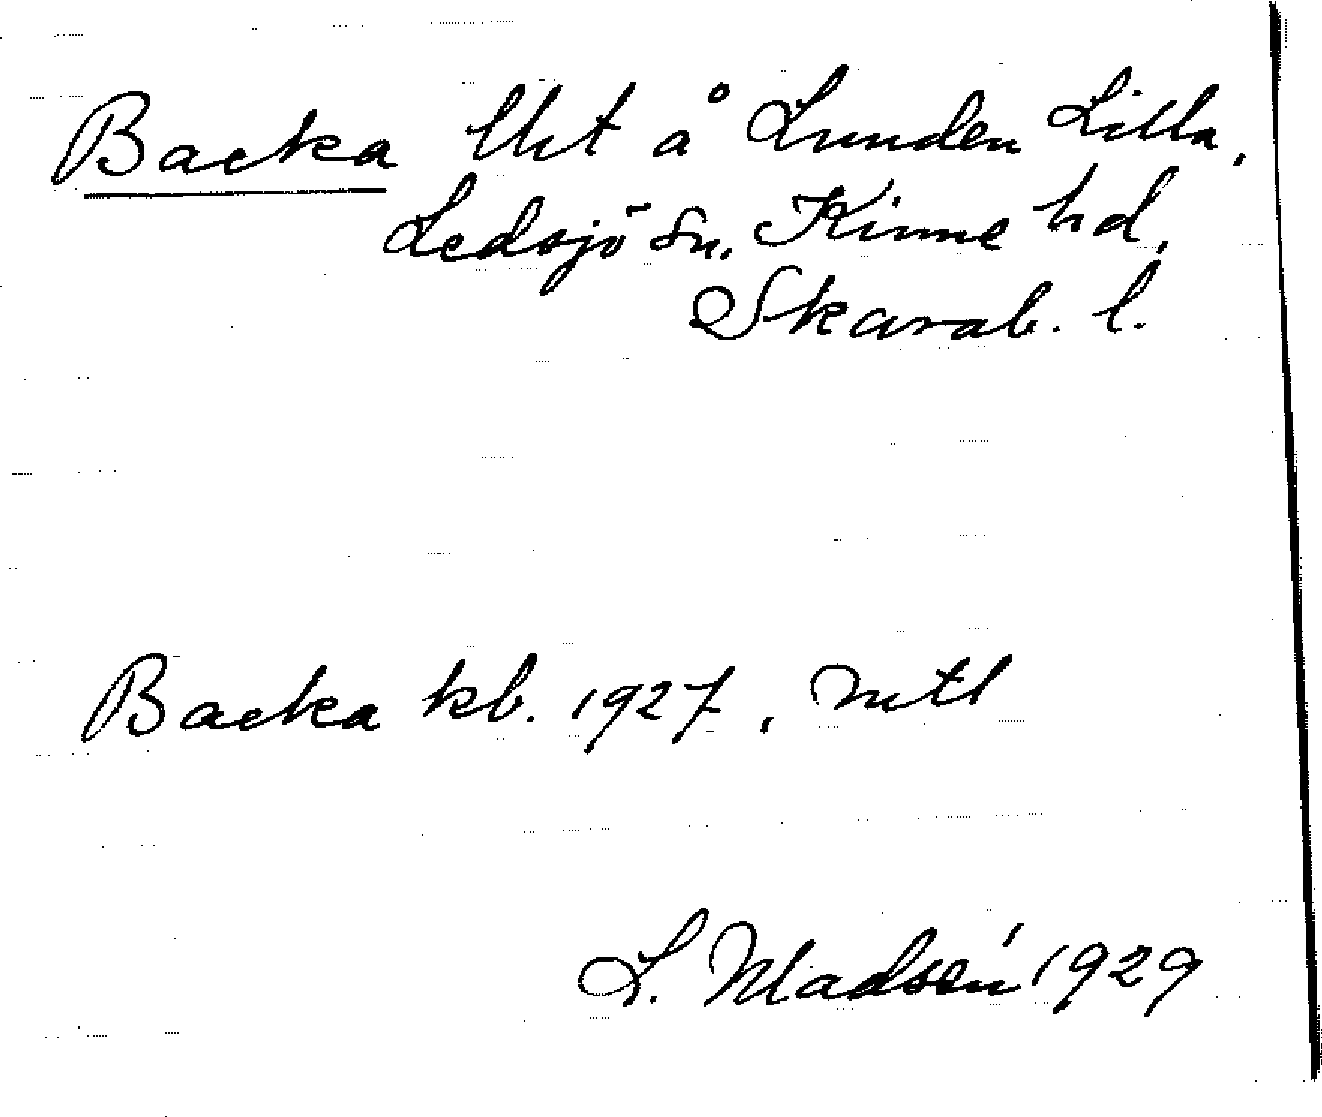 Backa lht å Lunden Lilla,
Ledsjö sn, Kinne hd,
Skarab. l.
Backa kb. 1927, mtl
L. Madsén 1929